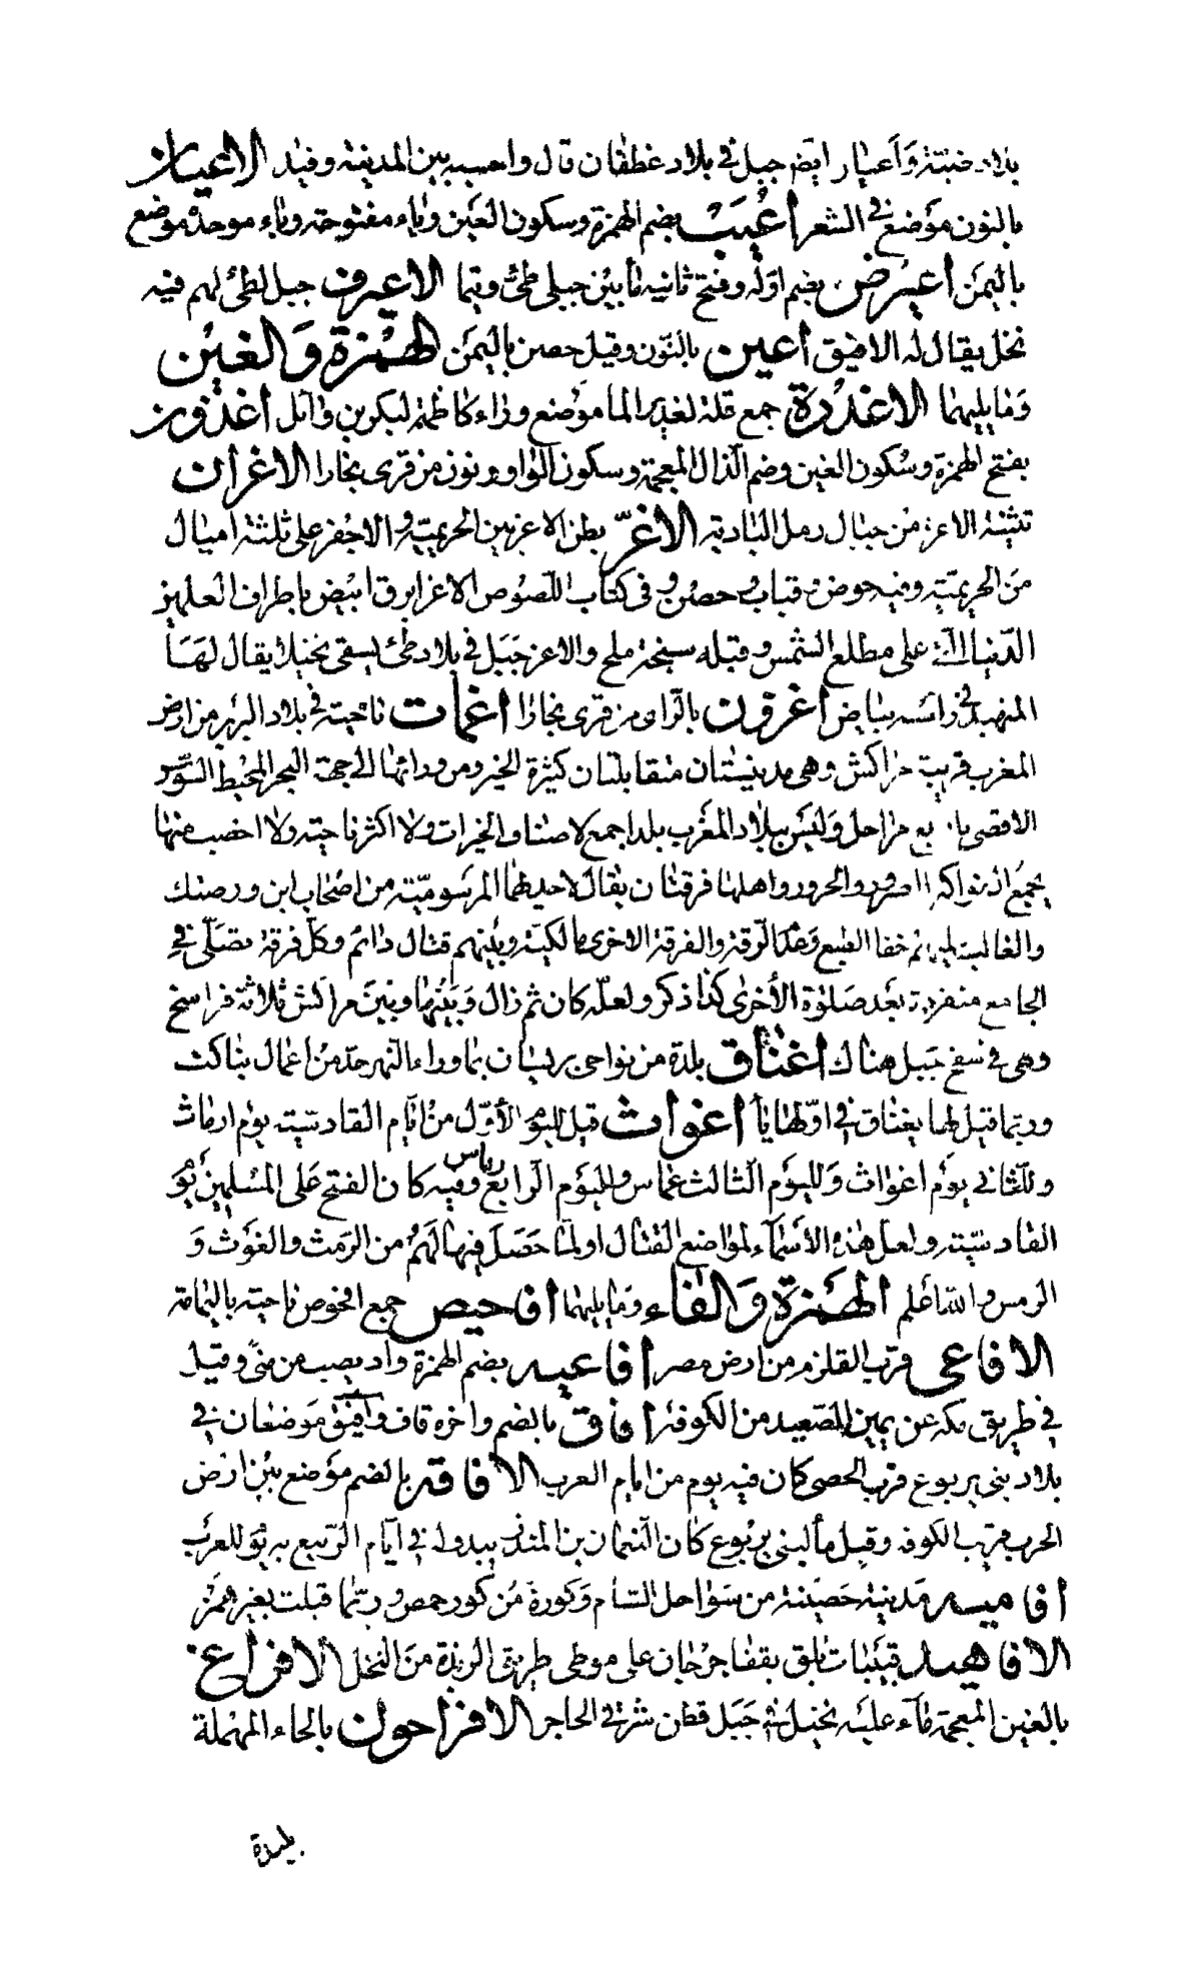 بلاد ضبّة وَأعيار ايضم جبل في بلاد غطفان قال واحسبه بين المدينة وفيد الاعيان
بالنون موضع في الشعر أعْيَبْ بضم الهمزة وسكون العَين وياء مفتوحة وباء موحدة موضع
باليمَن أعيرض بضم اوّله وفتح ثانيه ما بين جبلي طئ وتيما الاعيرف جبل لطئ لهم فيه
نخل يقال له الافيق أعين بالنّون وقيل حصن باليَمَن الهمْزة وَالغيْن
وَمَا يليهمَا الاغدرة جمع قلة لغدير الما موضع وراء كاظمة لبكر بن وائل اغذون
بفتح الهمزة وسُكون الغين وضم الذال المعجمة وسكون الواو ونون من قرى بخارا الاغران
تثنية الاغر من جبال رمل البادية الأغرّ بطن الاغر بين الخزيميّة والاجفر على ثلثة اميال
منَ الخزيميّة وفيه حوض وقباب وحصن وفى كتاب اللصُوص الاغر ابرق ابيض باطراف العلمين
الدّنيا التى على مطلع الشمس وقبله سبخة ملح والاغر جَبَل في بلاد طئ يسقى نخيلا يقال لهَا
المنهب في رأسه بياض اغزون بالزاى من قرى بخارا اغمات ناحية في بلاد البربر من ارض
المغرب قريب مراكش وهى مدينتان متقابلتان كثيرة الخير ومن ورائها الى جهة البحر المحيط السّوس
الاقصى باربع مراحل وَليسَ ببلاد المغَرب بلد اجمع لاصناف الخيرات ولا اكثر ناحية ولا اخصب منها
يجمَع الفواكه الصرود والحرور واهلها فرقتان يقال لاحديهما الموسوميّة من اصحاب ابن ورصند
والغالب عليهم جفا الطبع وَعدم الرّقة والفرقة الاخرى مالكيّة وبينهم قتال دائم وكل فرقة تصَلّى في
الجامع منفردة بعَد صَلوة الأخرى كذا ذكر ولعلّه كان ثم زال وَبينهما وبينَ مراكش ثلاثة فراسخ
وهى في سفح جَبل هناك اغناق بلدة من نواحى تركستان بما وراء النهر حدّ من اعمال بناكت
وربّما قيل لها يغناق في اوّلها يا اغواث قيل لليَوم الأوّل من ايّام القادسيّة يوم ارماث
وللثانى يومُ اغواث وَلليومِ الثالث عماس ولليَوم الرابع وفيه كان الفتح على المسْلمين يَوم
القادسيّة ولعل هذه الأسْماء لمواضع القتال او لما حَصَل فيها لهُم من الرَمث والغوَث وَ
الرمس والله أعْلم الهمْزة وَالفاء وَمَا يليهما أفاحيص جمع افحوص ناحية باليمامة
الافاعى قرب القلزم من ارض مصر أفاعيه بضم الهمزة واد يصب من منًى وقيل
في طريق مكه عن يمين المصعد من الكوفة أفاق بالضم واخره قاف وأفيق مَوضعان في
بلاد بنى يربوع قرب الحصى كان فيه يوم من ايام العرب الافاقه بالضم موضع من ارض
الحرب قرب الكوفه وقيل ماء لبنى يربُوع كان النعمان بن المنذر يبدوا في ايّام الرّبيع به يَوم للعرَب
أفاميه مَدينة حَصينة من سَوَاحل الشام وكورة مُن كور حمص وربّما قيلت بغير همز
الافاهيد قنينات بلق بقفا جرجان على موطى طريق الربذة منَ النخل الافراغ
بالغين المعجمة ماء عليَه نخيل في جَبَل قطن شرقى الحاجر الافراحون بالحاء المهملة
بليدة